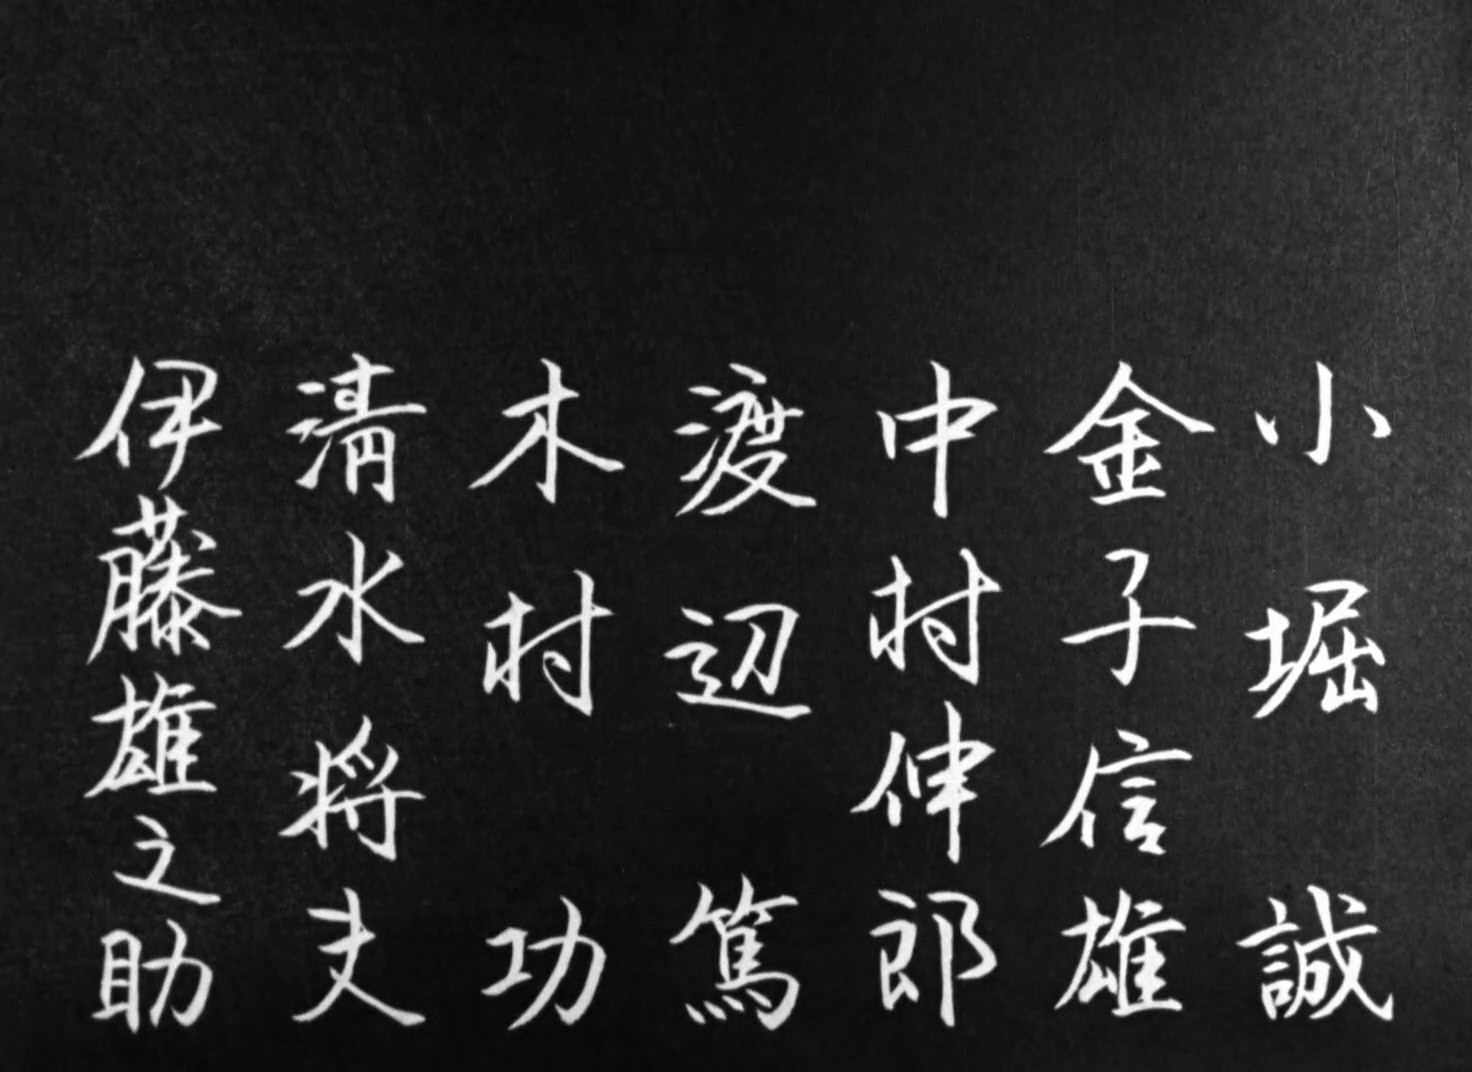 小堀誠
金子信雄
中村伸郎
渡辺篤
木村功
清水将夫
伊藤雄之助